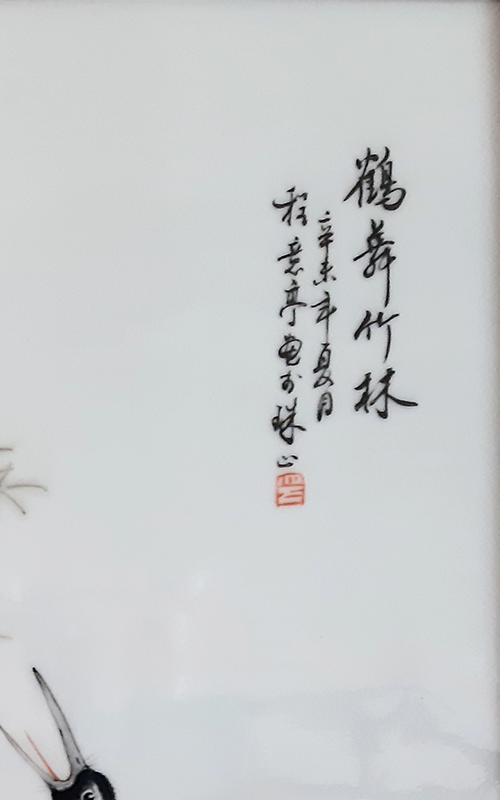 鶴舞竹林
辛未年夏月
程意亭畫於珠山